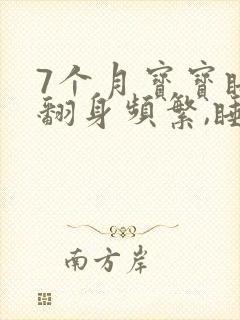 7个月寶寶
翻身頻繁,睡
南方岸